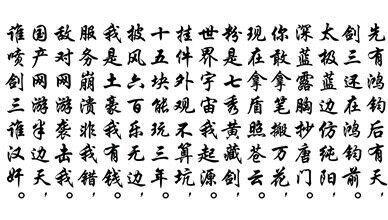 先有剑三后有天，
剑三还在鸿钧前。
太极蓝边仿纯阳，
深蓝露胸抄唐门。
你敢拿笔搬万花，
现在拿盾照苍云。
粉是七秀黄藏剑，
世界宇宙我起源。
挂件外观不算坑，
十五块能玩三年。
披风六百乐无边，
我是土豪我有钱。
服务崩溃非我错，
敌对网游袭击我。
国产网游半边天，
谁喷剑三谁汉奸。